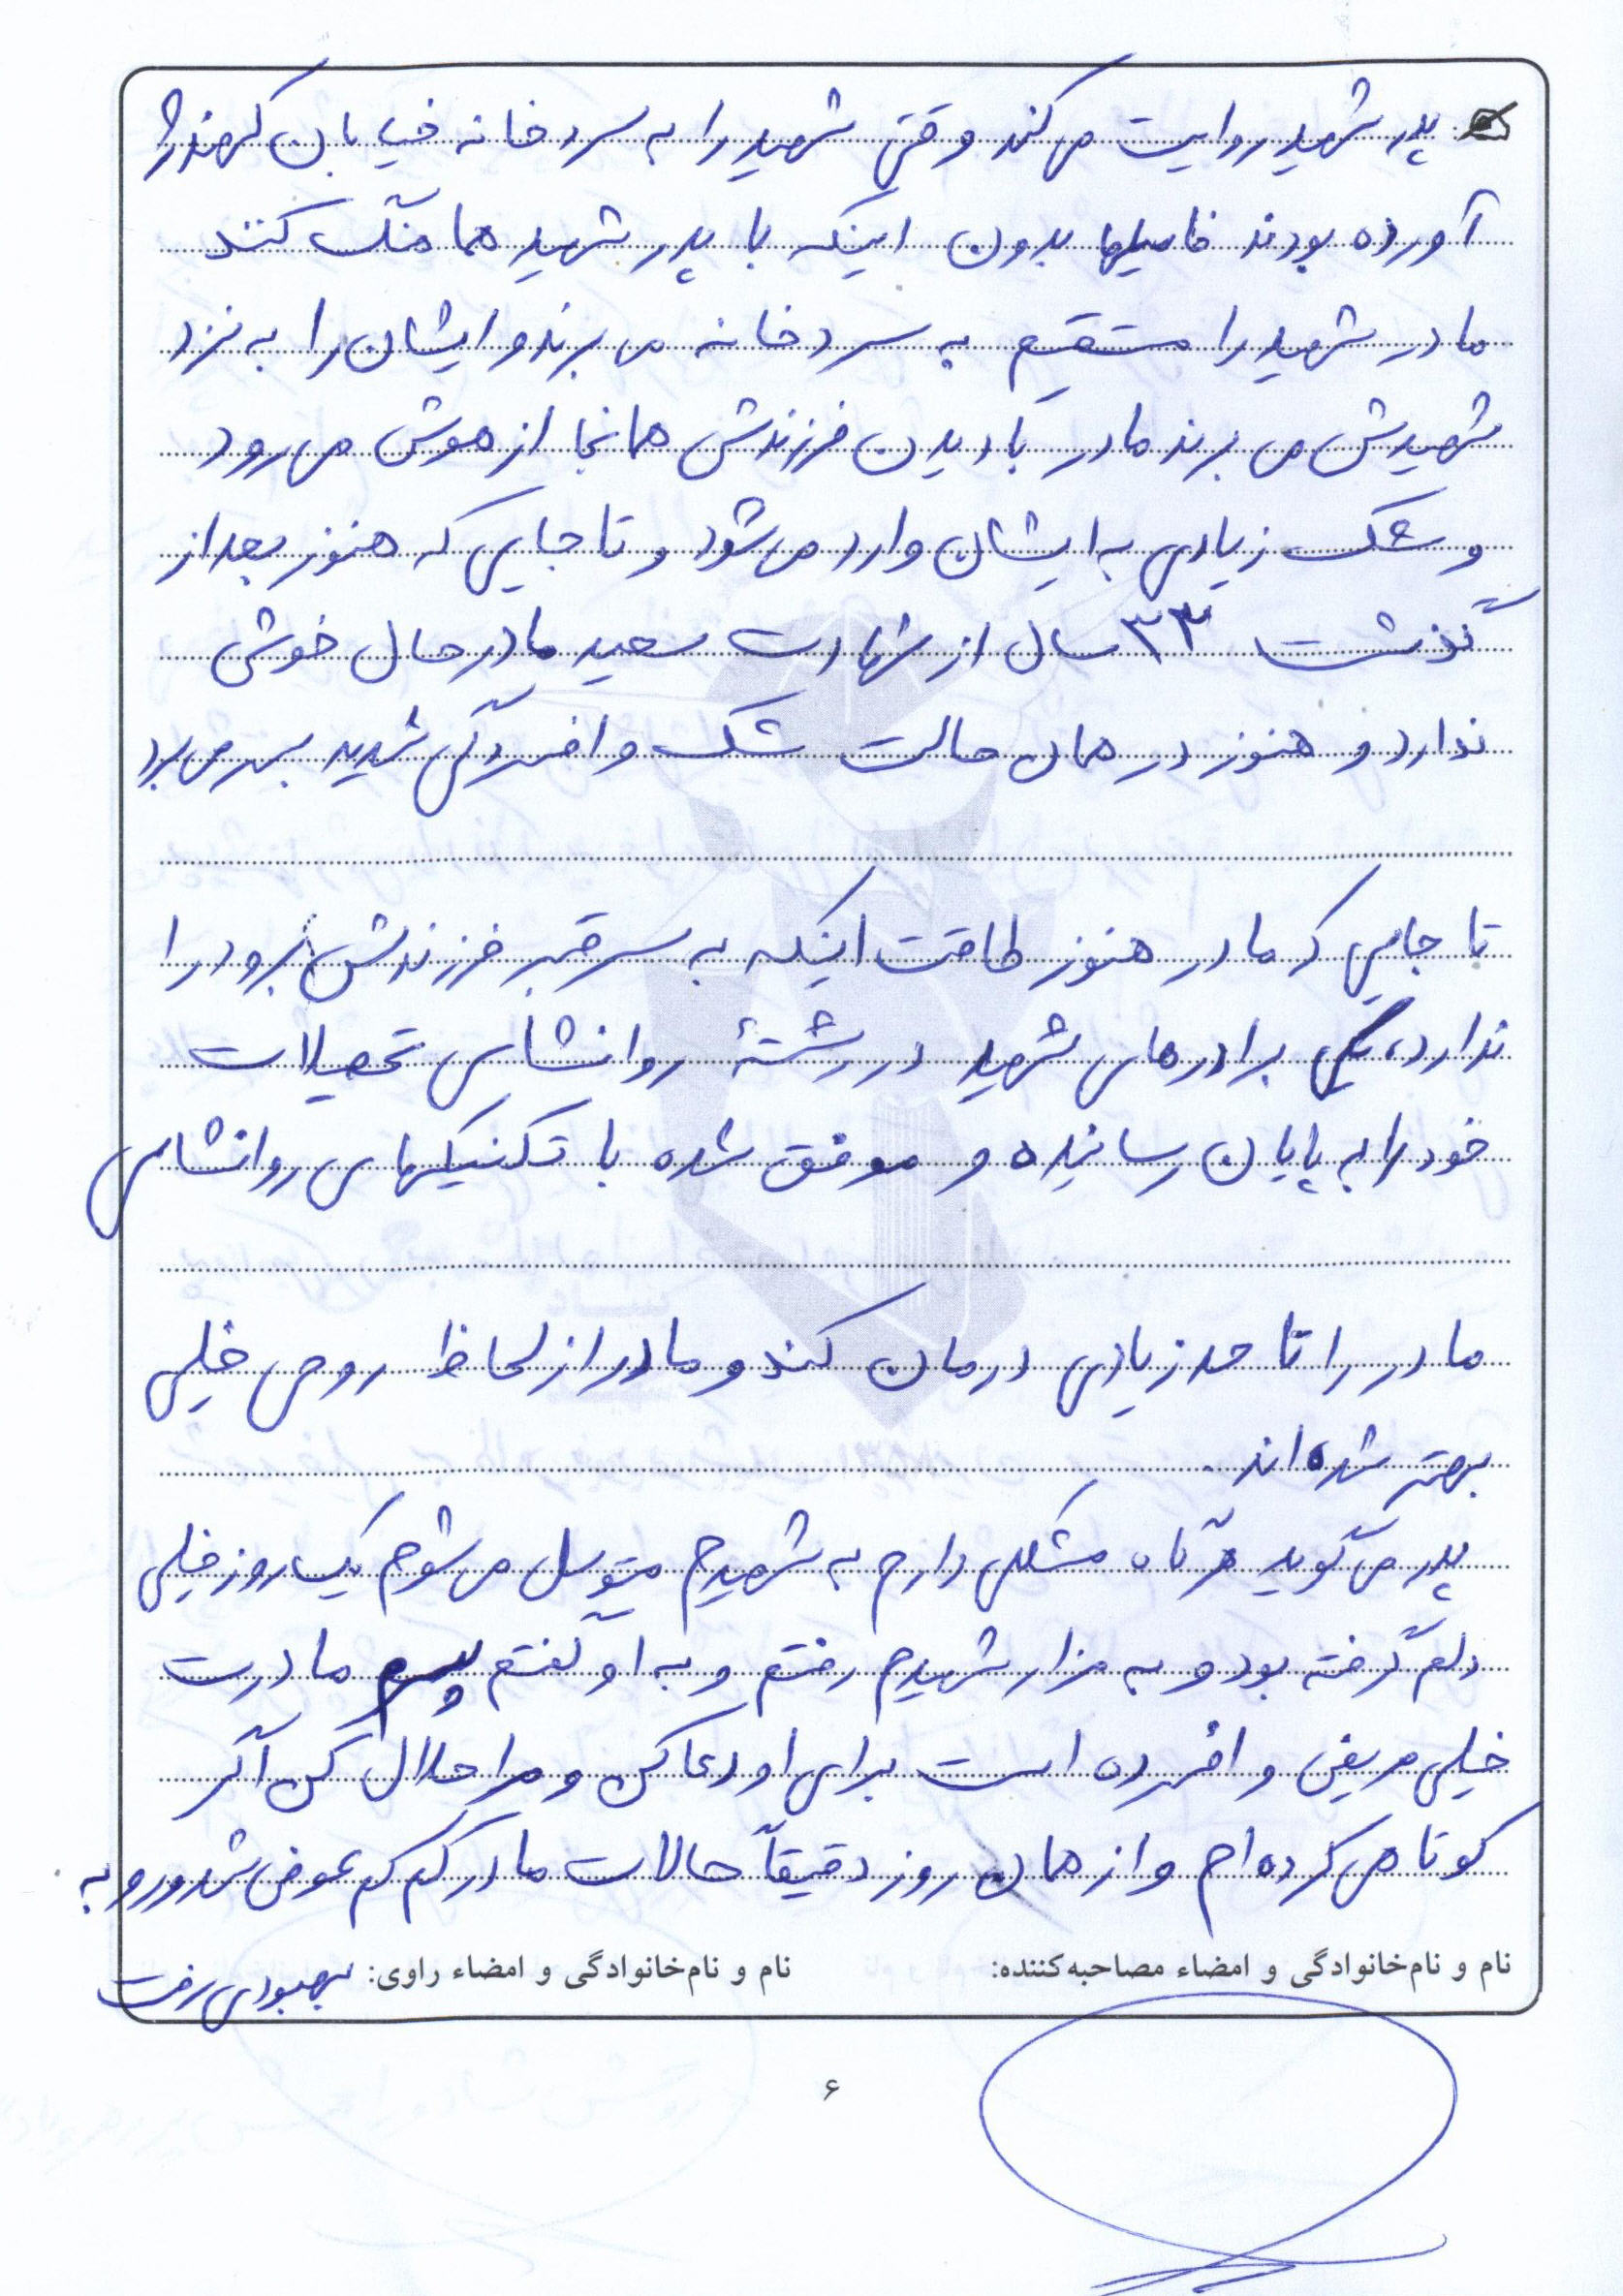 پدر شهید روایت می کند وقتی شهید را به سردخانه خیابان کهندژ
آورده بودند فامیلها بدون اینکه با پدر شهید هماهنگ کنند
مادر شهید را مستقیم به سردخانه می برند و ایشان را به نزد
شهیدش می برند مادر با دیدن فرزندش همانجا از هوش می رود
و شک زیادی به ایشان وارد می شود و تا جایی که هنوز بعد از
گذشت ۳۳ سال از شهادت سعید مادر حال خوشی
ندارد و هنوز در همان حالت شک و افسردگی شدید بسر می برد
تا جایی که مادر هنوز طاقت اینکه به سر قبر فرزندش برود را
ندارد، یکی برادرهای شهید در رشتۀ روانشناسی تحصیلات
خود را به پایان رسانیده و موفق شده با تکنیکهای روانشناسی
مادر را تا حد زیادی درمان کند و مادر از لحاظ روحی خیلی
بهتر شده اند.
پدر می گوید هرگاه مشکلی دارم به شهیدم متوسل می شوم یک روز خیلی
دلم گرفته بود و به مزار شهیدم رفتم و به او گفتم پسرم مادرت
خیلی مریض و افسرده است برای او دعا کن و مرا حلال کن اگر
کوتاهی کرده ام و از همان روز دقیقاً حالات مادر کم کم عوض شد و رو به
بهبودی رفت
نام و نام‌خانوادگی و امضاء مصاحبه‌کننده: نام و نام‌خانوادگی و امضاء راوی:
۶